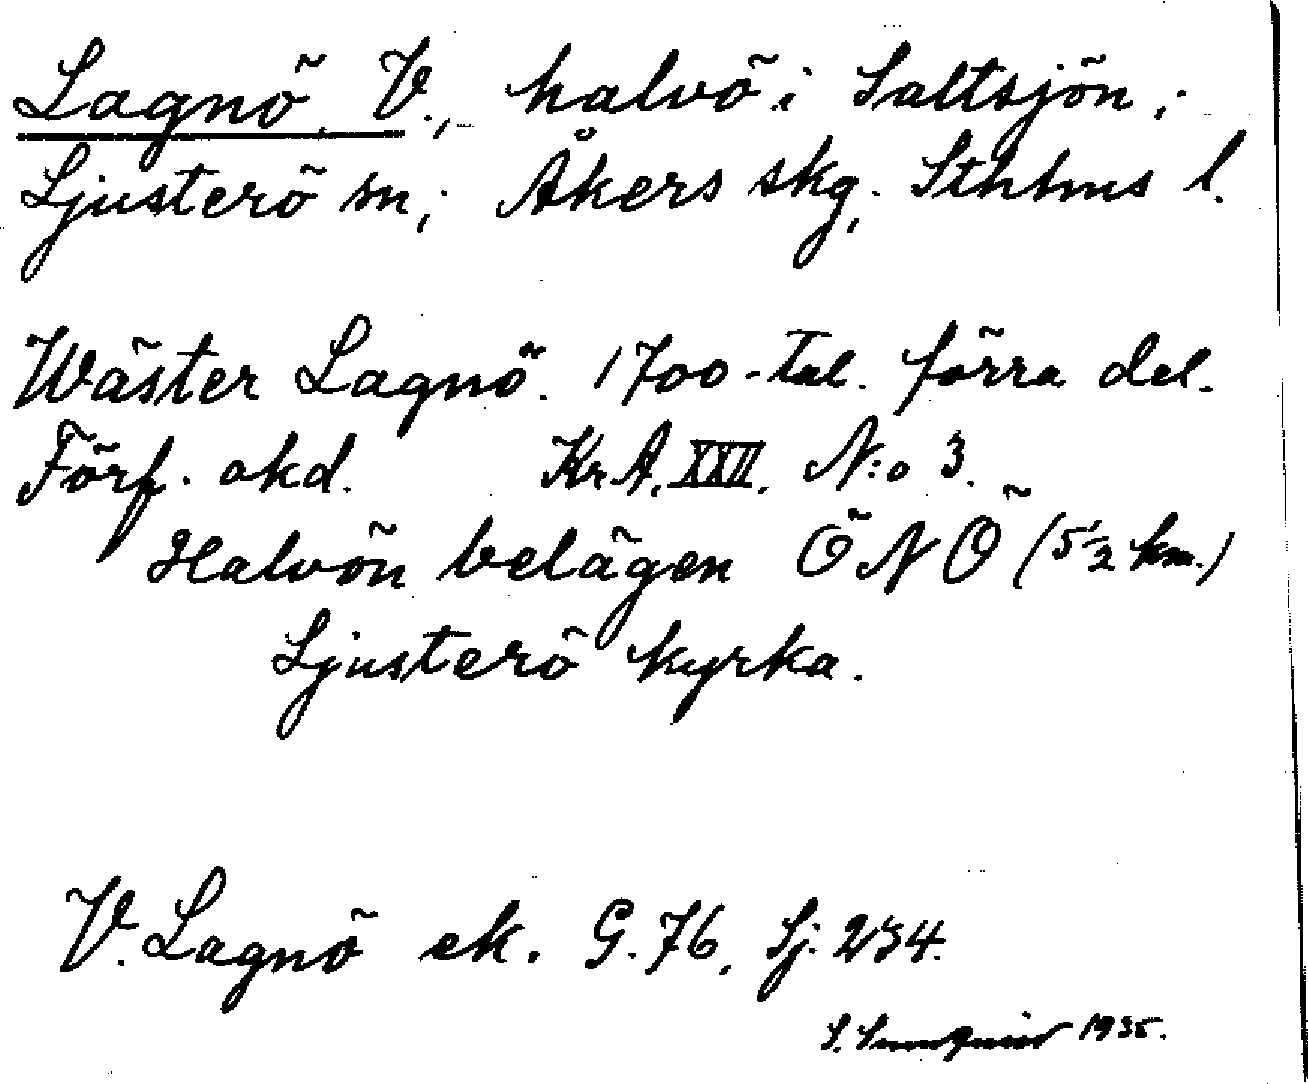 Lagnö, V., halvö i Saltsjön;
Ljusterö sn; Åkers skg; Sthlms l.
Wäster Lagnö. 1700-tal. förra del.
Förf. okd. KrA. XXII. N:o 3.
Halvön belägen ÖNÖ (5½ km.)
Ljusterö kyrka.
V. Lagnö ek. G. 76, Sj. 234.
S. 1935.